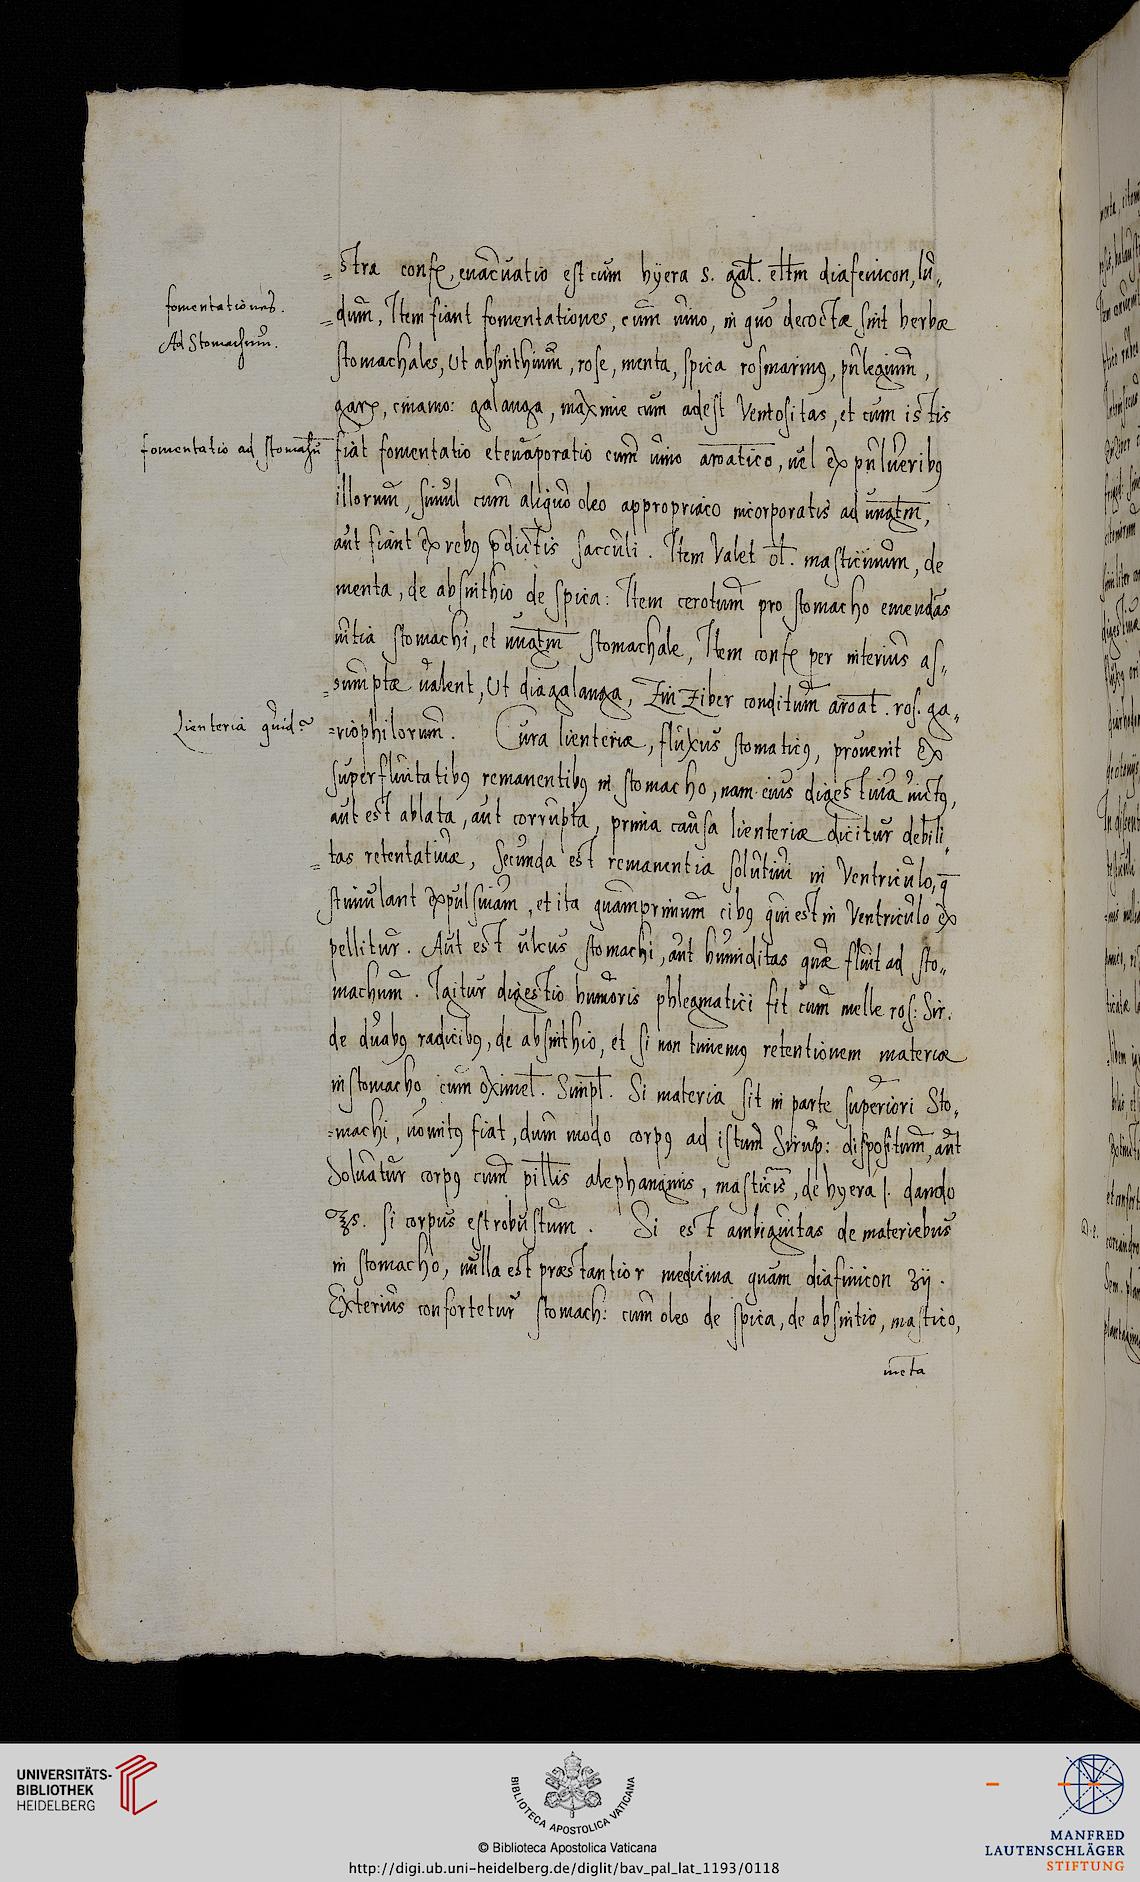 fomentationes.
Ad Stomachum.
fomentatio ad stomachũ
Lienteria quid?
stra conf, euacuatio est cum hyera s. gal. eltm diafenicon, lu„
dum, Item fiant fomentationes, cum uino, in quo decoctæ sint herbæ
stomachales, ut absinthium, rose, menta, spica rosmarinus, pulegium,
gar, cinamo: galanga, maxime cum adest Ventositas, et cum istis
fiat fomentatio et euaporatio cum uino aroatico, uel ex pulueribus
illorum, simul cum aliquo oleo appropriato incorporatis ad unatm,
aut fiant ex rebus pdictis sacculi. Item Valet ol. masticinum, de
menta, de absinthio de spica: Item cerotum pro stomacho emendas
uitia stomachi, et unatm stomachale, Item conf per interius as„
sumptæ ualent, ut diagalanga, Zinziber conditum aroat. ros. ga„
riophilorum. Cura lienteriæ, fluxus stomaticus, prouenit ex
superfluitatibus remanentibus in stomacho, nam eius digestiua uictus,
aut est ablata, aut corrupta, prima causa lienteriæ dicitur debili„
tas retentatiuæ, Secunda est remanentia solutiui in Ventriculo, q̄
stimulant expulsiuam, et ita quamprimum cibus qui est in Ventriculo ex
pellitur. Aut est ulcus stomachi, aut humiditas quæ fluit ad sto„
machum. Igitur digestio humoris phlegmatici fit cum melle ros: Sir.
de duabus radicibus, de absinthio, et si non timemus retentionem materiæ
in stomacho, cum oximel. Simpl. Si materia sit in parte superiori Sto„
machi, uomitus fiat, dum modo corpus ad istum Sirup: dispositum, aut
Soluatur corpus cum pillis alephanginis, masticis, de hyera s. dando
ʒs. si corpus est robustum. Si est ambiguitas de materiebus
in stomacho, nulla est præstantior medicina quam diafinicon ʒij.
Exterius confortetur stomach: cum oleo de spica, de absintio, mastico,
meta
UNIVERSITÄTS-
BIBLIOTHEK
HEIDELBERG
BIBLIOTECA APOSTOLICA VATICANA
© Biblioteca Apostolica Vaticana
http://digi.ub.uni-heidelberg.de/diglit/bav_pal_lat_1193/0118
MANFRED
LAUTENSCHLÄGER
STIFTUNG